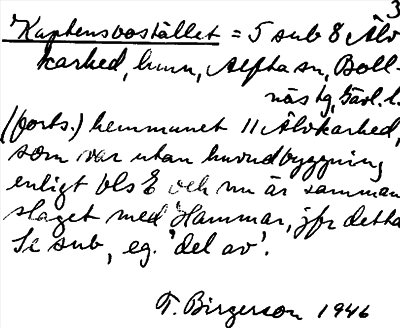 3
'Kaptensbostället = 5 sub 8 Älv
karhed, hmn, Alfta sn, Boll-
näs tg, Gävl. l.
(forts.) hemmanet 11 Älvkarhed,
som var utan huvudbyggning
enligt bls E och nu är samman
slaget med 'Hammar, jfr detta
Se sub, eg. 'del av'.
T. Birgerson 1946